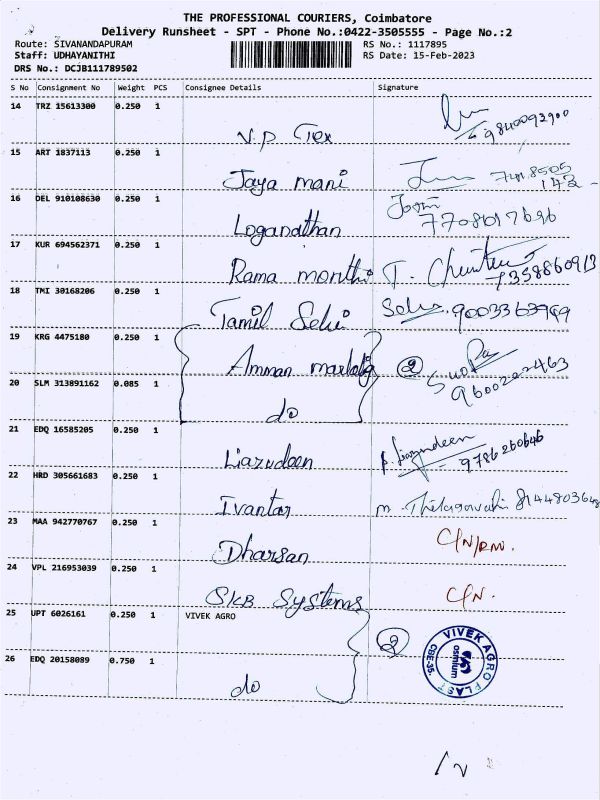 THE PROFESSIONAL COURIERS, Coimbatore
Delivery Runsheet - SPT - Phone No.:0422-3505555 - Page No.:2
Route: SIVANANDAPURAM RS No.: 1117895
Staff: UDHAYANITHI RS Date: 15-Feb-2023
DRS No.: DCJB111789502
S No Consignment No Weight PCS Consignee Details Signature
14 TRZ 15613300 0.250 1
V.P Tex 9840093900
15 ART 1837113 0.250 1
Jaya mani
16 DEL 910108630 0.250 1
Loganathan
17 KUR 694562371 0.250 1
Rama 7358860913
18 TMI 30168206 0.250 1
Tamil Selvi 9003363949
19 KRG 4475180 0.250 1
Amman 2
20 SLM 313891162 0.085 1
do
21 EDQ 16585205 0.250 1
Liazudeen 9786260646
22 HRD 305661683 0.250 1
Ivantar
23 MAA 942770767 0.250 1
Dharsan
24 VPL 216953039 0.250 1
SKB Systems
25 UPT 6026161 0.250 1 VIVEK AGRO
2 VIVEK AGRO PLAST CBE-35. osmium
26 EDQ 20158089 0.750 1
do